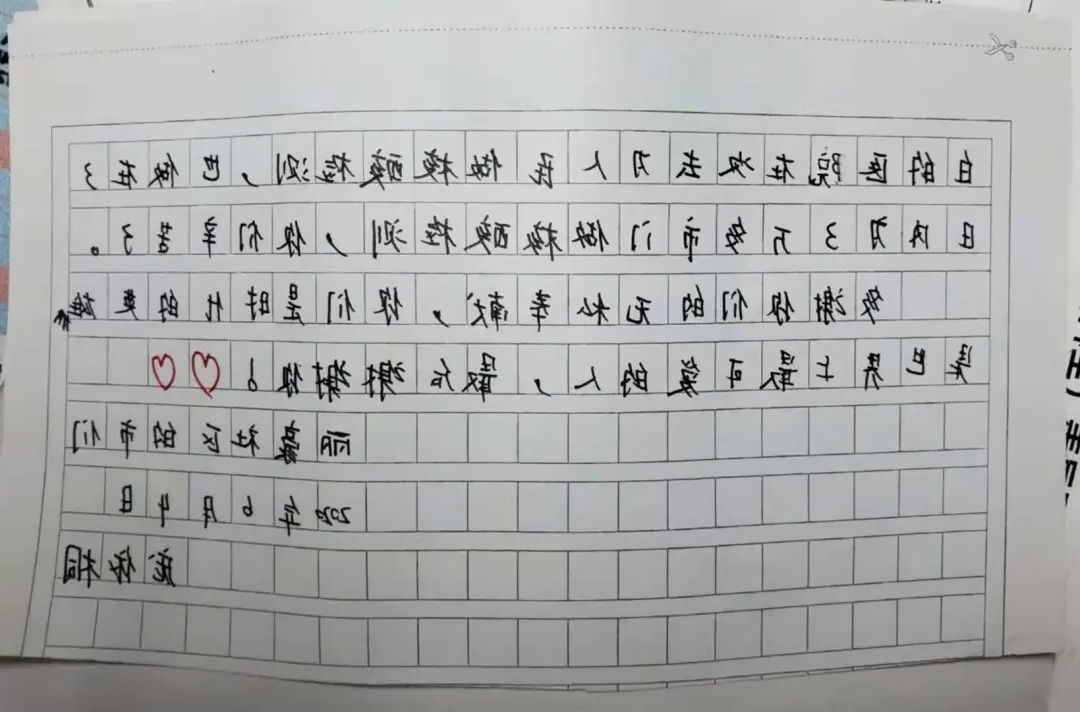 白的医院在次去为人民做核酸检测，巴做在3
日内为3万多市门做核酸检测，你们辛苦了。
多谢你们的无私奉献，你们是时代的英雄
是巴士最可爱的人，最后谢谢你！
社区的市们
2020年6月4日
桐